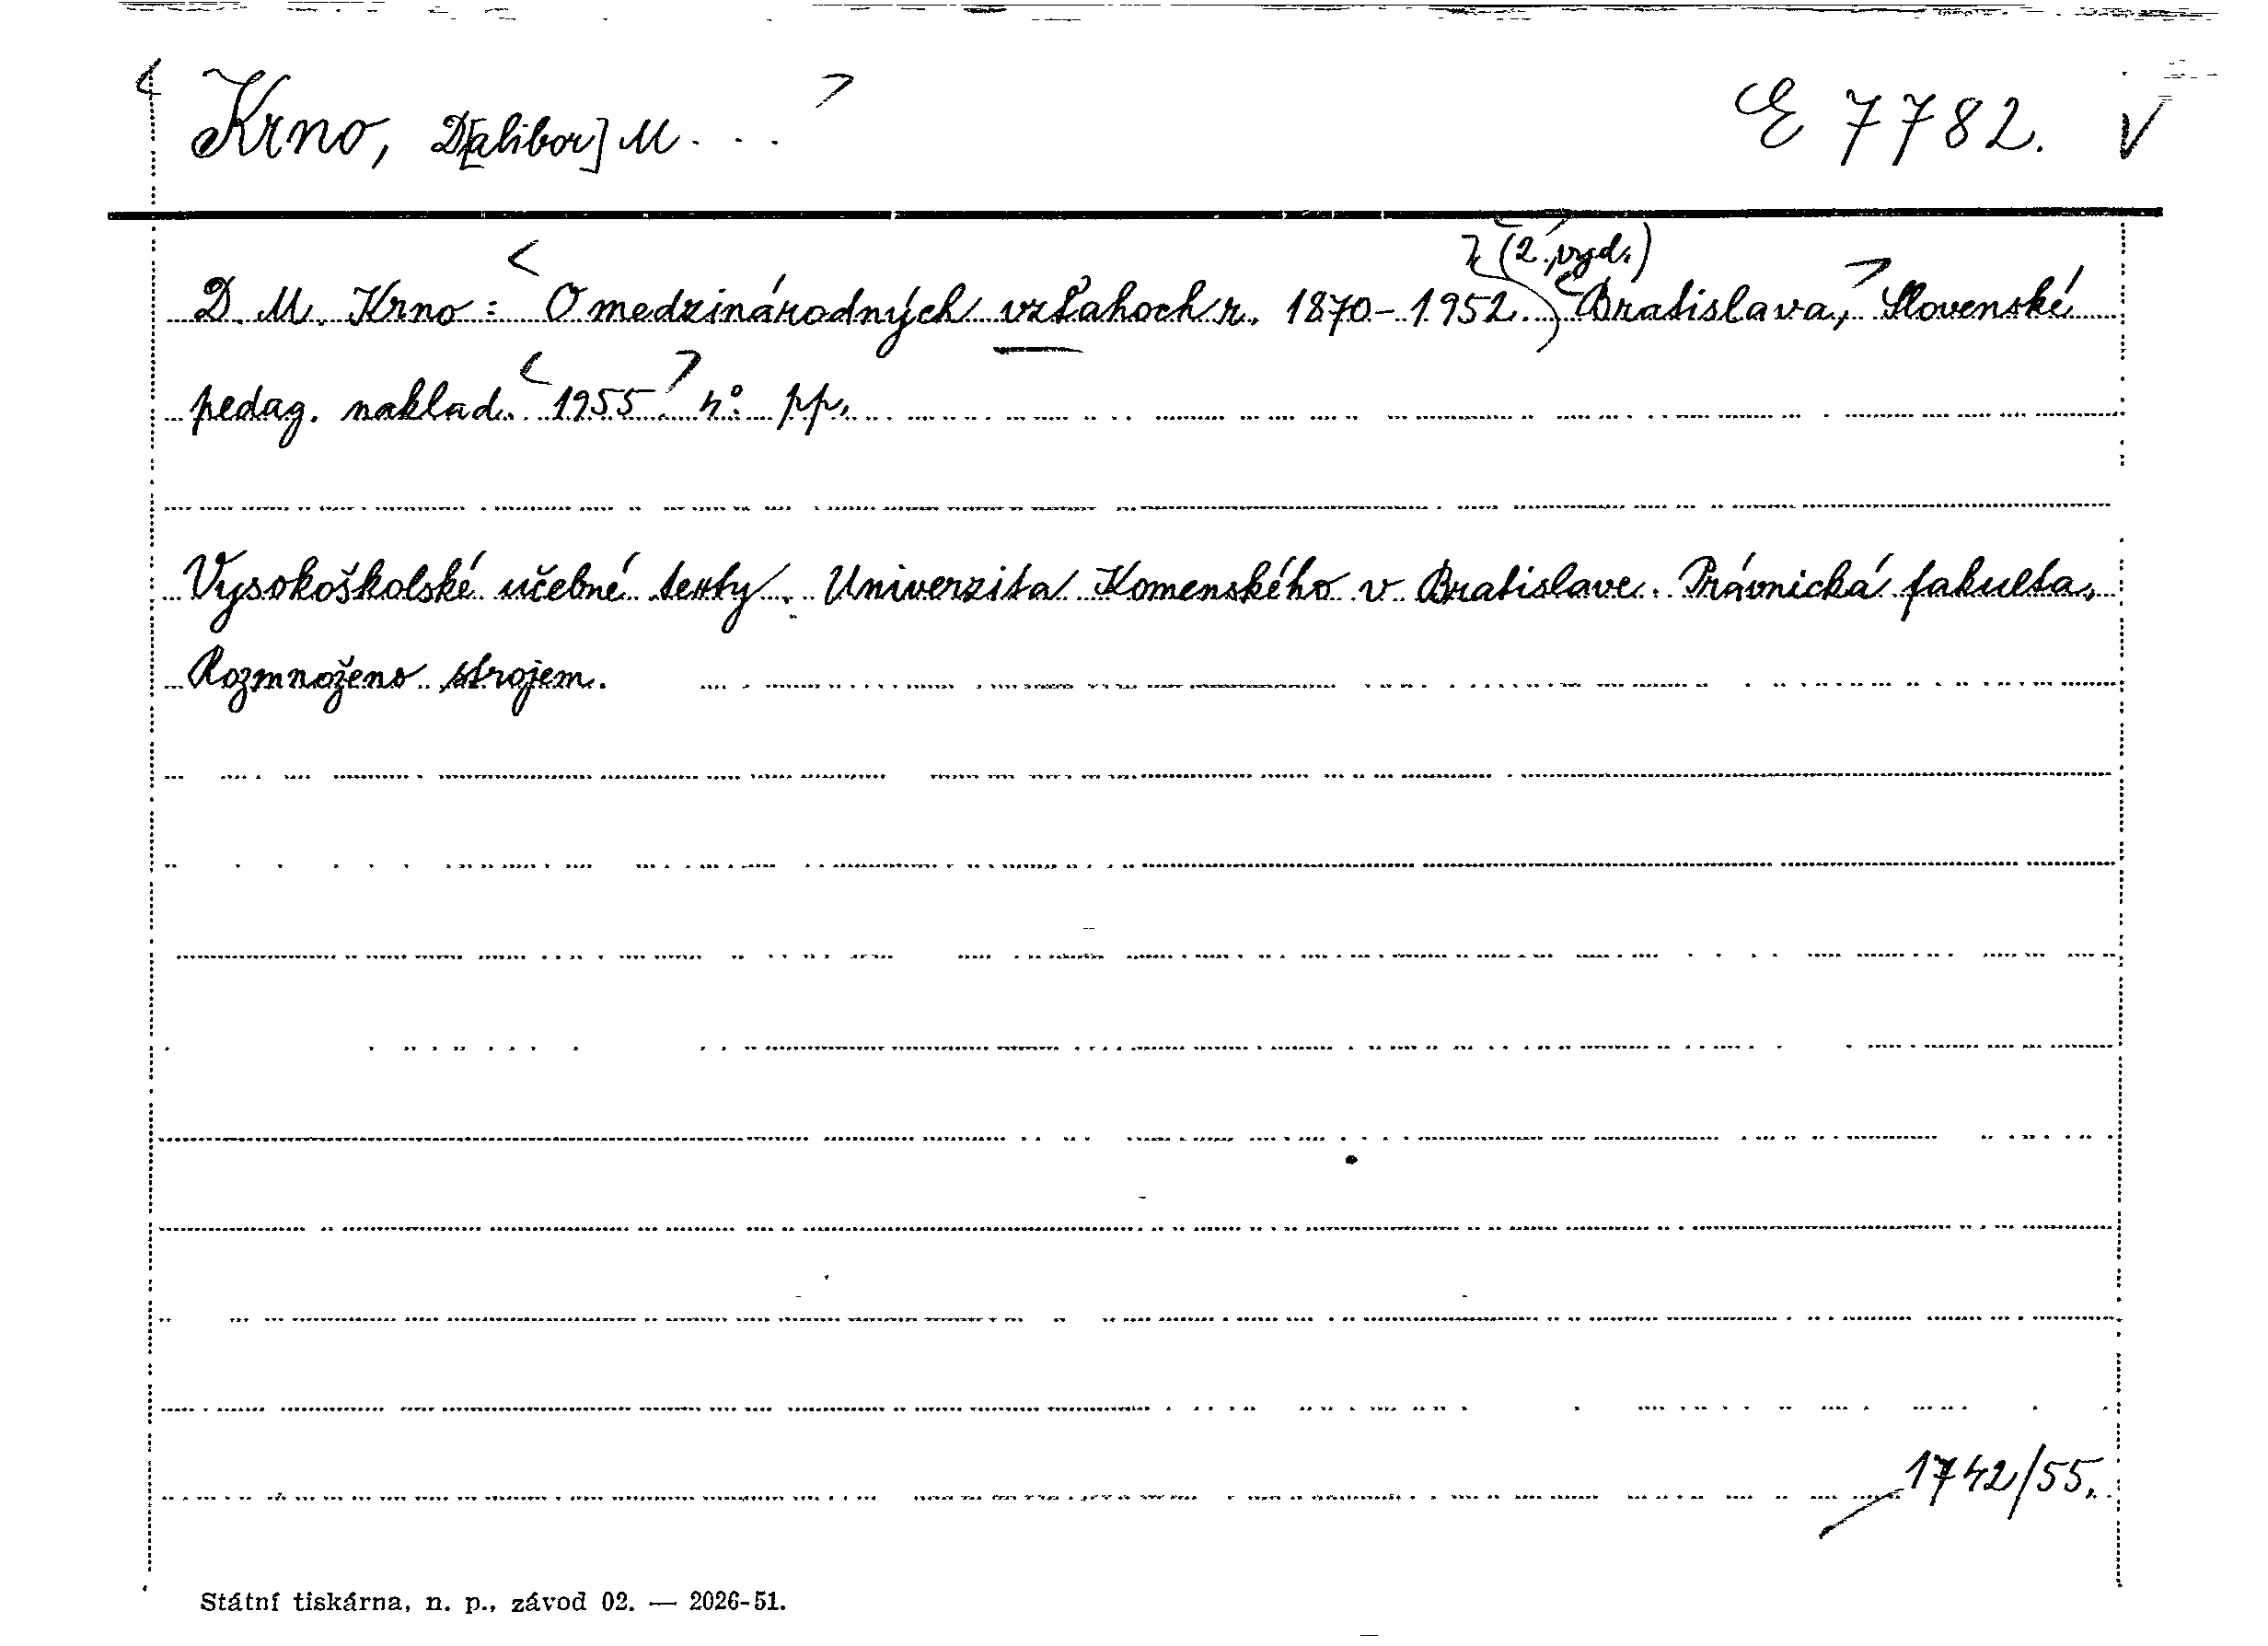 Krno, D[alibor] M. . . E 7782. V
(2. vyd.)
D. M. Krno: O medzinárodných vzťahoch r. 1870-1952. Bratislava, Slovenské
pedag. naklad. 1955. 4°. pp.
Vysokoškolské učebné texty. Univerzita Komenského v Bratislave. Právnická fakulta.
Rozmnoženo strojem.
1742/55.
Státní tiskárna, n. p., závod 02. — 2026-51.